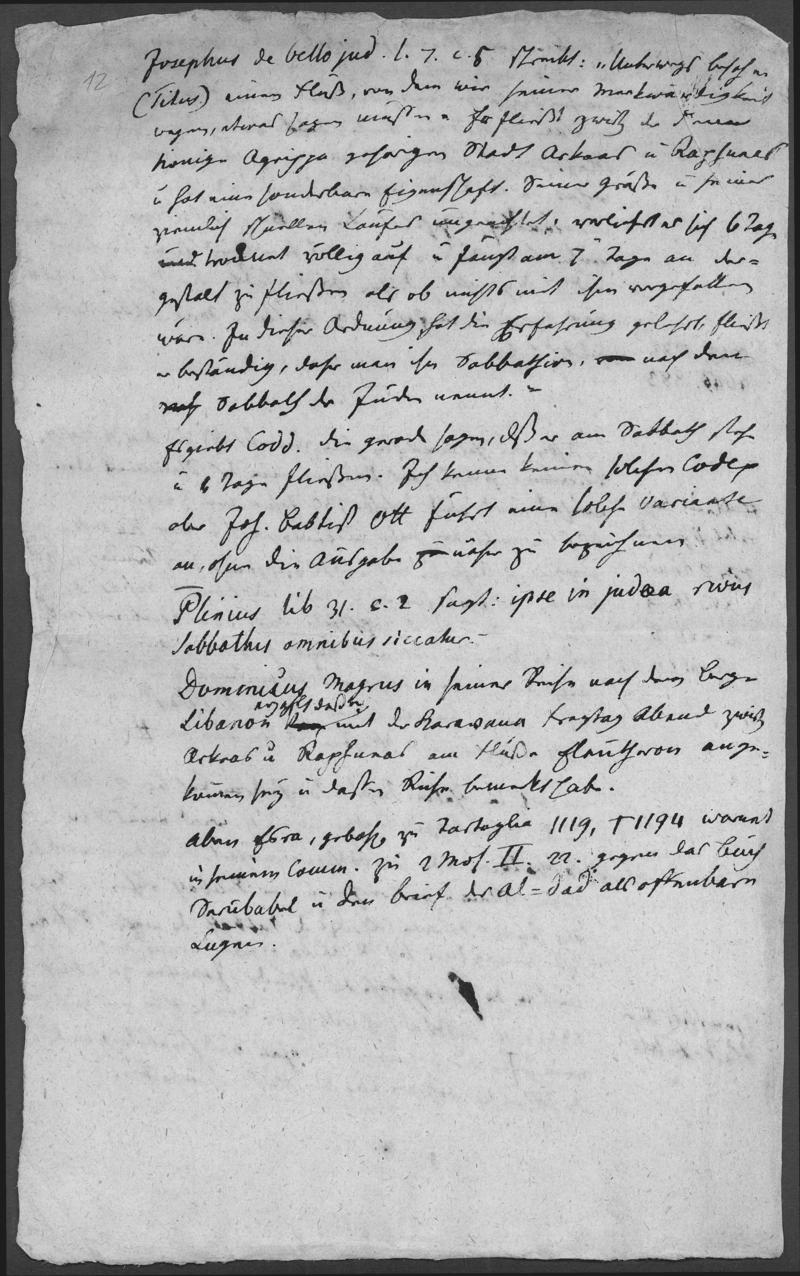 12
Josephus de bello jud. l. 7. c. 5 schreibt: „Unterwegs besah er
(Titus) einen Fluß, von dem wir seiner Merkwürdigkeit
wegen, etwas sagen müssen. Er fließt zwisch. der dem
Könige Agrippa gehörigen Stadt Arkaas u Raphanas
u hat eine sonderbare Eigenschaft. Seiner Größe u seines
ziemlich schnellen Laufes ungeachtet, verliert er sich 6 Tage
und trocknet völlig auf u fängt am 7 Tage an der=
gestalt zu fließen als ob nichts mit ihm vorgefallen
wäre. In dieser Ordnung, hat die Erfahrung gelehrt, fließt
er beständig, daher man ihn Sabbathion, nach dem
Sabbath der Juden nennt."
Es giebt Codd. die gerade sagen, daß er am Sabbath stehe
u 6 Tage fließen. Ich kenne keinen solchen Codex
aber Joh. Baptist Ott führt eine solche Variante
an, ohne die Ausgabe näher zu bezeichnen
Plinius lib 31. c. 2 sagt: ipse in judæa rivus
sabbathis omnibus siccatur.
Dominicus Magrus in seiner Reise nach dem Berge
Libanon erzählt daß er mit der Karavana Freytag Abend zwisch
Arkas u Raphanas am Fluße Eleutheron ange=
kommen sey u dessen Ruhe bemerkt habe.
Aben Esra, geboh. zu Tartoglia 1119, † 1194 warnt
in seinem Comm. zu 2 Mos. II. 22. gegen das Buch
Serubabel u den Brief des Al=dad als offenbare
Lügen.